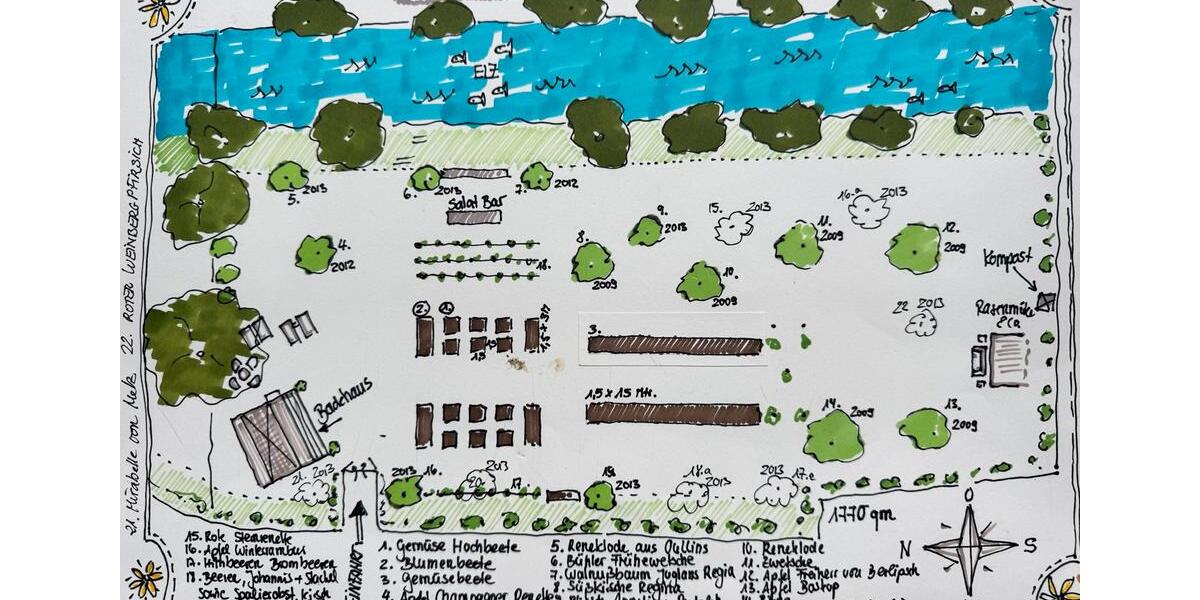 ELZ
5.
2013
6.
2013
7.
2012
Salat Bar
4.
2012
18.
8.
2009
9.
2013
10.
2009
15.
2013
11.
2009
16.a
2013
12.
2009
Kompost
22
2013
2.
1.
3.
1,5 x 15 Mtr.
Backhaus
21. 2013
2013
16.
2013
20.
17
19.
2013
18.a
2013
2013
17.e
14.
2009
13.
2009
1770 qm
O
N
S
21. Mirabelle von Metz 22. ROTER WEINBERGPFIRSICH
15. Rote Sternrenette
16. Apfel Winterrambur
17. Himbeeren Brombeeren
18. Beeren, Johannis + Stachel
sowie Spalierobst, Kirsch
1. Gemüse Hochbeete
2. Blumenbeete
3. Gemüsebeete
4. Apfel Champagner Renette
5. Reneklode aus Oullins
6. Bühler Frühzwetsche
7. Walnußbaum Juglans Regia
8. Süßkirsche Regina
10. Reneklode
11. Zwetsche
12. Apfel Freiherr von Berlepsch
13. Apfel Boskop